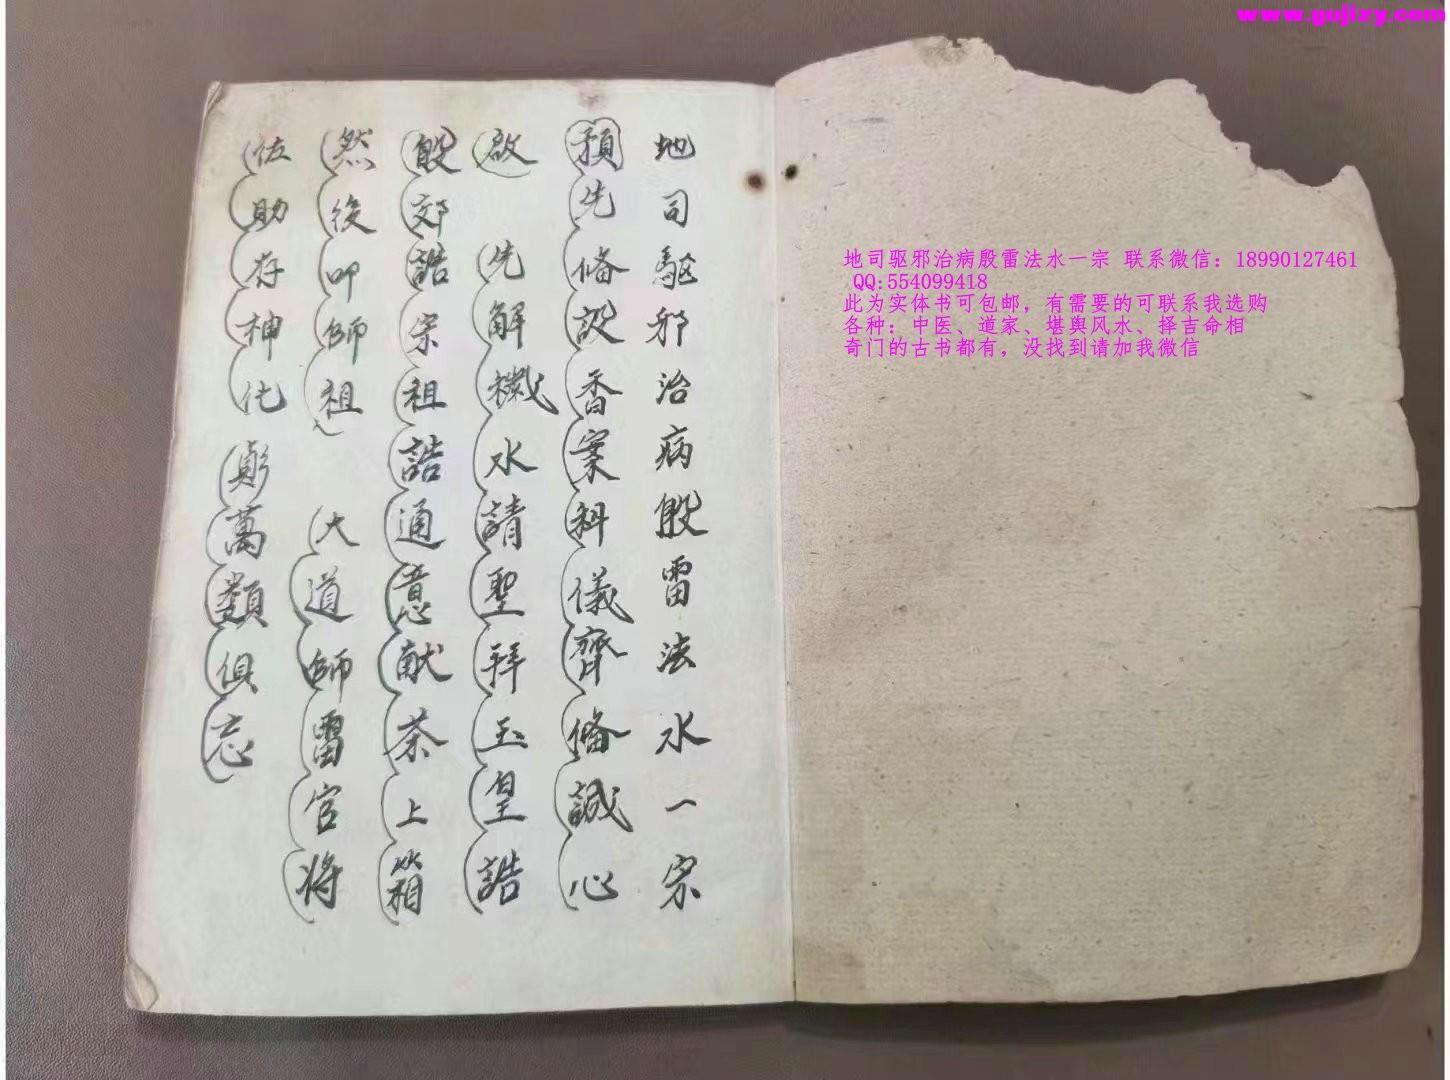 www.gujizy.com
地司驱邪治病殷雷法水一宗 联系微信：18990127461
QQ:554099418
此为实体书可包邮，有需要的可联系我选购
各种：中医、道家、堪舆风水、择吉命相
奇门的古书都有，没找到请加我微信
地司驅邪治病殷雷法水一宗
預先修設香案科儀齊備誠心
啟 先解穢水請聖拜玉皇誥
殷郊誥宗祖誥通意献茶上箱
然後叩師祖 大道師雷官将
佐助存神化 萬類俱忘